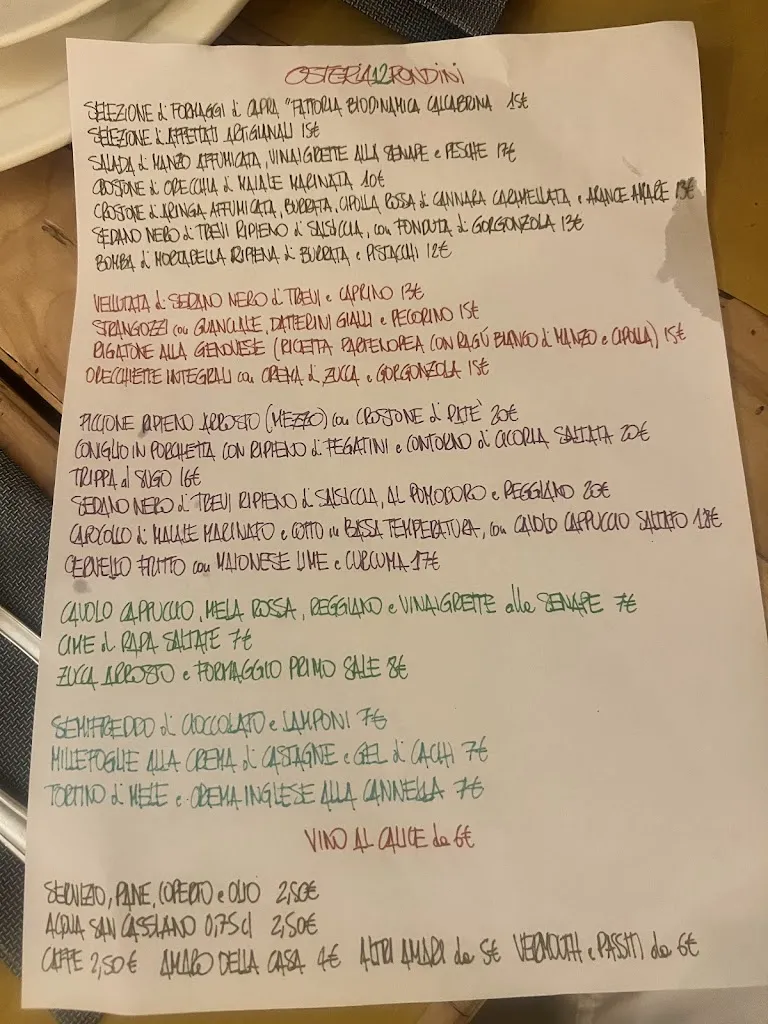 OSTERIA12RONDINI
SELEZIONE di FORMAGGI di CAPRA "FATTORIA BIODINAMICA CALCABRINA 15€
SELEZIONE di AFFETTATI ARTIGIANALI 15€
SALADA di MANZO AFFUMICATA, VINAIGRETTE ALLA SENAPE e PESCHE 17€
CROSTONE di ORECCHIA di MAIALE MARINATA 10€
CROSTONE di ARINGA AFFUMICATA, BURRATA, CIPOLLA ROSSA di CANNARA CARAMELLATA e ARANCE AMARE 13€
SEDANO NERO di TREVI RIPIENO di SALSICCIA, con FONDUTA di GORGONZOLA 13€
BOMBA di MORTADELLA RIPIENA di BURRATA e PISTACCHI 12€
VELLUTATA di SEDANO NERO di TREVI e CAPRINO 13€
STRANGOZZI con GUANCIALE, DATTERINI GIALLI e PECORINO 15€
RIGATONE ALLA GENOVESE (RICETTA PARTENOPEA CON RAGÚ BIANCO di MANZO e CIPOLLA) 15€
ORECCHIETTE INTEGRALI con CREMA di ZUCCA e GORGONZOLA 15€
PICCIONE RIPIENO ARROSTO (MEZZO) con CROSTONE di PATÈ 20€
CONIGLIO IN PORCHETTA CON RIPIENO di FEGATINI e CONTORNO di CICORIA SALTATA 20€
TRIPPA al SUGO 16€
SEDANO NERO di TREVI RIPIENO di SALSICCIA, AL POMODORO e REGGIANO 20€
CAPOCOLLO di MAIALE MARINATO e COTTO in BASSA TEMPERATURA, con CAVOLO CAPPUCCIO SALTATO 18€
CERVELLO FRITTO con MAIONESE LIME e CURCUMA 17€
CAVOLO CAPPUCCIO, MELA ROSSA, REGGIANO e VINAIGRETTE alla SENAPE 7€
CIME di RAPA SALTATE 7€
ZUCCA ARROSTO e FORMAGGIO PRIMO SALE 8€
SEMIFREDDO di CIOCCOLATO e LAMPONI 7€
MILLEFOGLIE ALLA CREMA di CASTAGNE e GEL di CACHI 7€
TORTINO di MELE e CREMA INGLESE ALLA CANNELLA 7€
VINO AL CALICE da 6€
SERVIZIO, PANE, COPERTO e OLIO 2,50€
ACQUA SAN CASSIANO 0,75 cl 2,50€
CAFFE 2,50€ AMARO DELLA CASA 4€ ALTRI AMARI da 5€ VERMOUTH e PASSITI da 6€